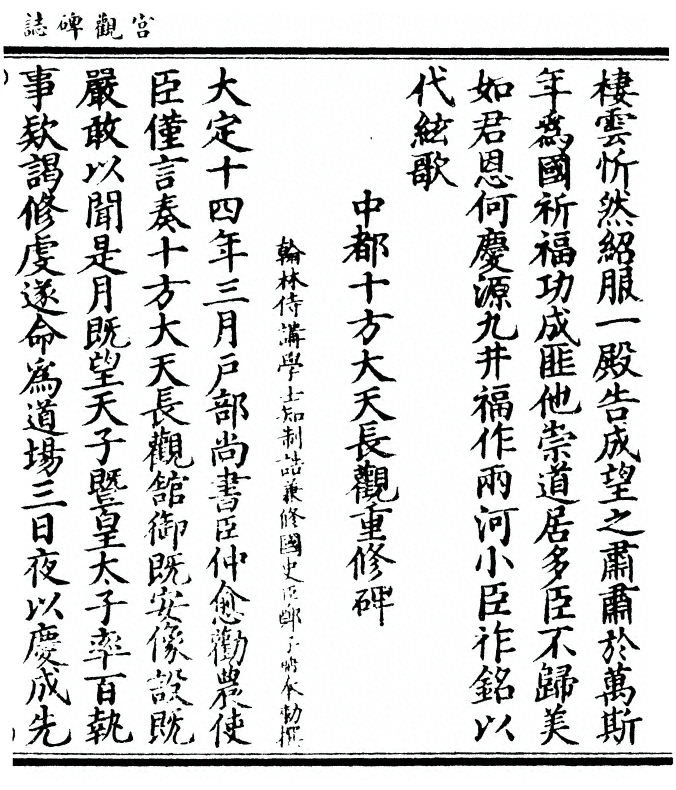 宮觀碑誌
棲雲忻然紹服一殿告成望之肅肅於萬斯
年爲國祈福功成匪他崇道居多臣不歸美
如君恩何慶源九井福作兩河小臣祚銘以
代絃歌
中都十方大天長觀重修碑
翰林侍講學士知制誥兼修國史臣鄭子聃奉勅撰
大定十四年三月戶部尚書臣仲愈勸農使
臣僅言奏十方大天長觀舘御既安像設既
嚴敢以聞是月既望天子暨皇太子率百執
事欵謁修虔遂命爲道場三日夜以慶成先